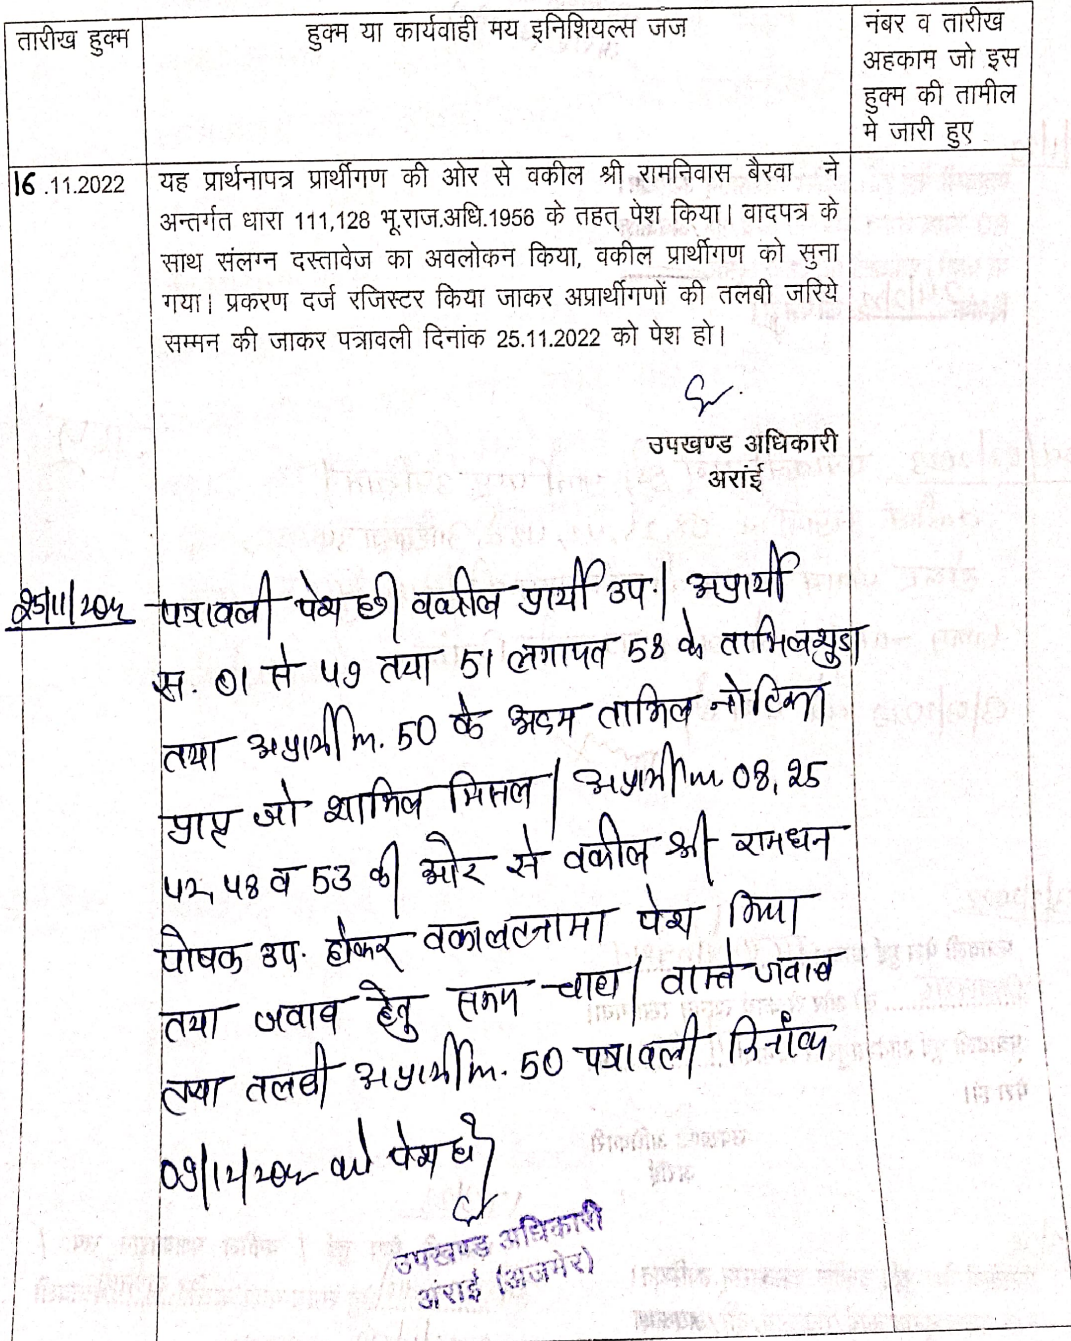 तारीख हुक्म
हुक्म या कार्यवाही मय इनिशियल्स जज
नंबर व तारीख
अहकाम जो इस
हुक्म की तामील
मे जारी हुए
16.11.2022
यह प्रार्थनापत्र प्रार्थीगण की ओर से वकील श्री रामनिवास बैरवा ने
अन्तर्गत धारा 111,128 भू.राज.अधि.1956 के तहत् पेश किया। वादपत्र के
साथ संलग्न दस्तावेज का अवलोकन किया, वकील प्रार्थीगण को सुना
गया। प्रकरण दर्ज रजिस्टर किया जाकर अप्रार्थीगणों की तलबी जरिये
सम्मन की जाकर पत्रावली दिनांक 25.11.2022 को पेश हो।
उपखण्ड अधिकारी
अरांई
25/11/2022
पत्रावली पेश हुई। वकील प्रार्थी उप.। अप्रार्थी
स. 01 से 49 तथा 51 लगायत 58 के तामिलशुदा
तथा अप्रार्थी सं. 50 के अदम तामिल नोटिस
प्राप्त जो शामिल मिसल। अप्रार्थी सं. 08, 25
42, 48 व 53 की ओर से वकील श्री रामधन
पोषक उप. होकर वकालतनामा पेश किया
तथा जवाब हेतु समय चाहा। वास्ते जवाब
तथा तलबी अप्रार्थी सं. 50 पत्रावली दिनांक
09/12/2022 को पेश हो।
उपखण्ड अधिकारी
अंराई (अजमेर)